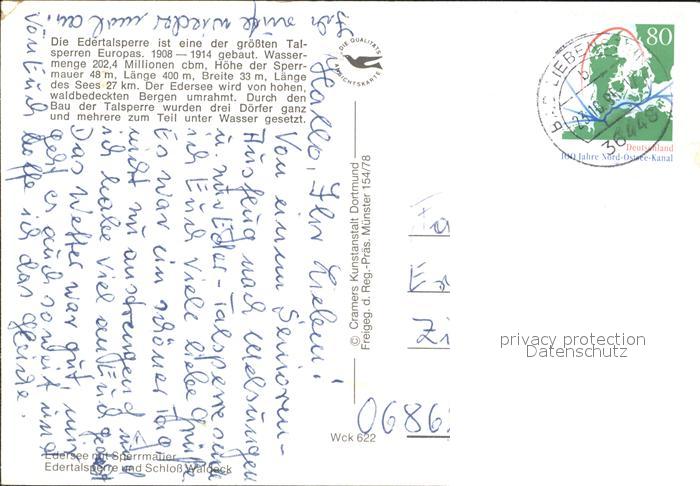 Die Edertalsperre ist eine der größten Tal-
sperren Europas. 1908 — 1914 gebaut. Wasser-
menge 202,4 Millionen cbm, Höhe der Sperr-
mauer 48 m, Länge 400 m, Breite 33 m, Länge
des Sees 27 km. Der Edersee wird von hohen,
waldbedeckten Bergen umrahmt. Durch den
Bau der Talsperre wurden drei Dörfer ganz
und mehrere zum Teil unter Wasser gesetzt.
Hallo, Ihr Lieben!
Von einem Senioren-
Ausflug nach Melsungen
u. zur Eder-Talsperre sende
ich Euch viele liebe Grüße
Es war ein schöner Tag
nicht zu anstrengend und
ich habe viel an Euch gedacht
Das Wetter war gut mir
geht es auch soweit und
von Euch hoffe ich das gleiche.
Ich rufe wieder mal an.
DIE QUALITÄTS
ANSICHTSKARTE
© Cramers Kunstanstalt Dortmund
Freigeg. d. Reg.-Präs. Münster 154/78
80
Deutschland
100 Jahre Nord-Ostsee-Kanal
38448
privacy protection
Datenschutz
06898
Wck 622
Edersee mit Sperrmauer
Edertalsperre und Schloß Waldeck